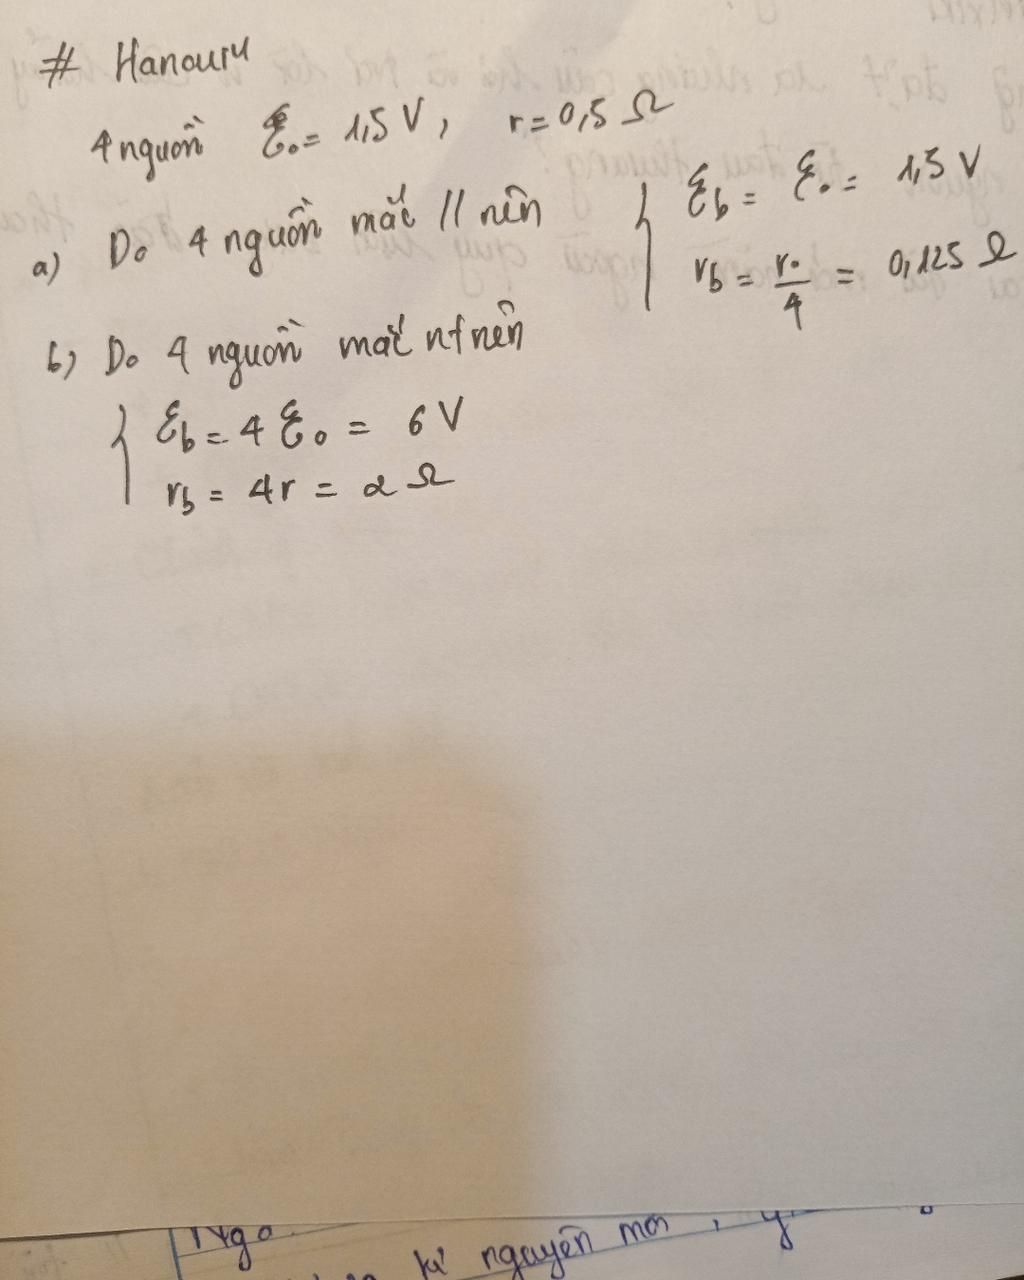 # Hanouru
4 nguồn ℰ₀ = 1,5 V, r = 0,5 Ω
a) Do 4 nguồn mắc // nên { ℰb = ℰ₀ = 1,5 V
rb = r₀/4 = 0,125 Ω
b) Do 4 nguồn mắc nt nên
{ ℰb = 4 ℰ₀ = 6 V
rb = 4r = 2 Ω
kỉ nguyên mới, y